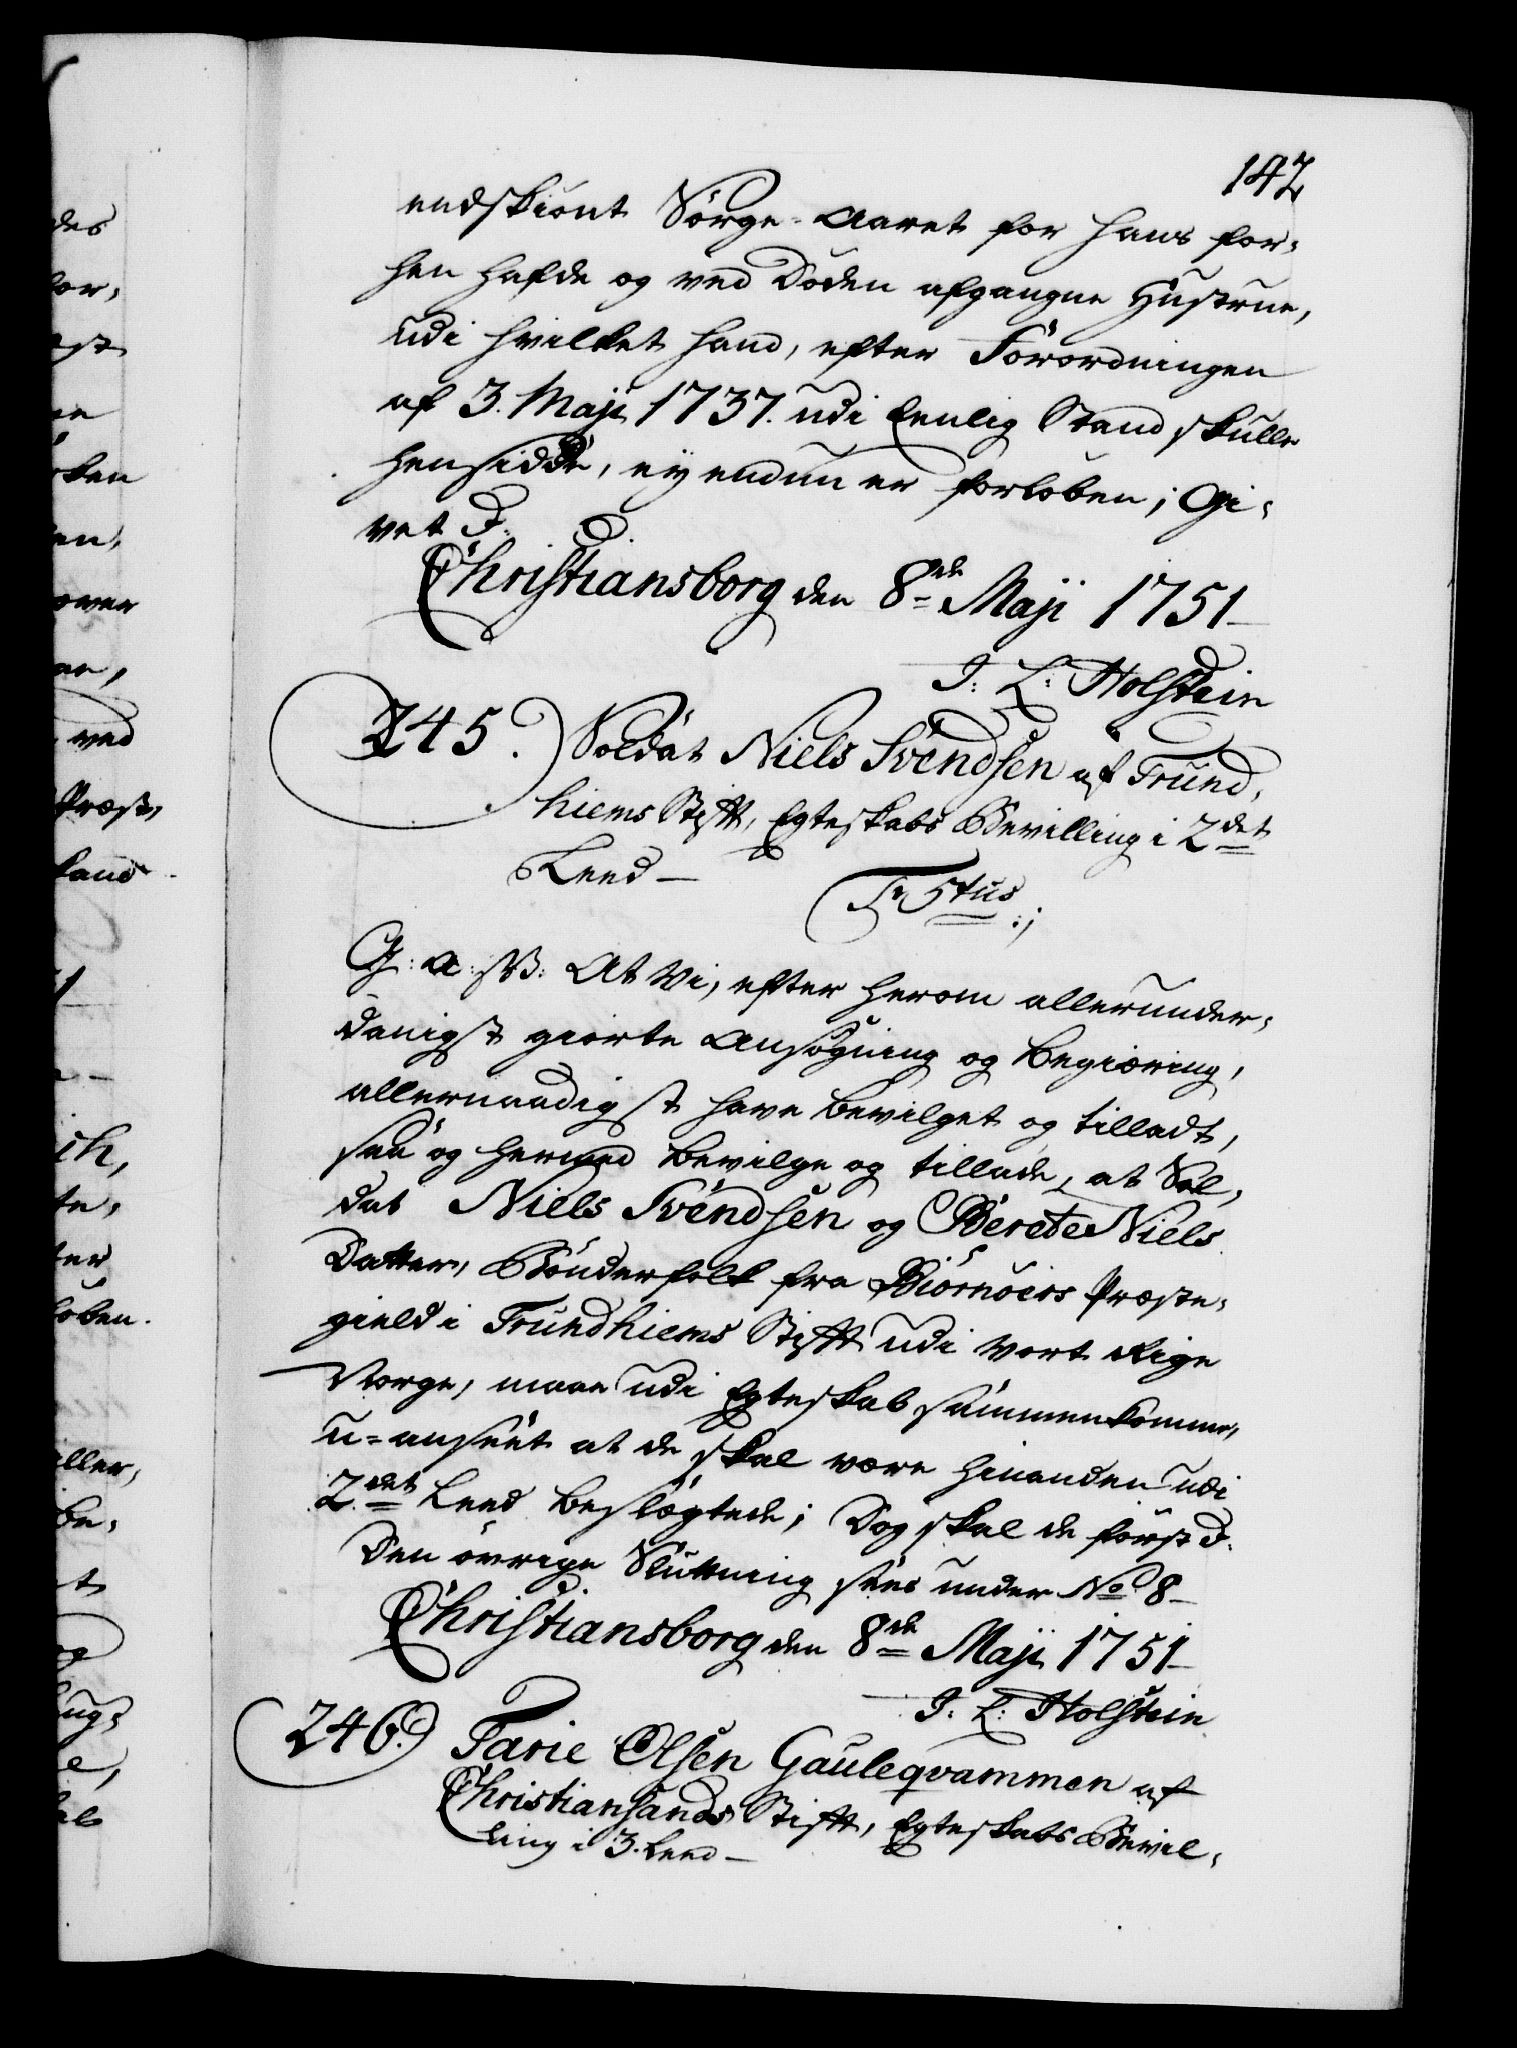 142
endskiönt Sörge-Aaret for hans for-
hen hafde og ved Döden afgangne Hustrue,
udi hvilket hand, efter Forordningen
af 3. Maji 1737. udi Eenlig Stand skulle
hensidde, ey endnu er forloben; Gi-
vet &.
Christiansborg den 8de Maji 1751
J: L: Holstein
245. Soldat Niels Svendsen af Trund,
hiems Stift, Egteskabs Bevilling i 2det
Leed
F5tus:;
G: A: V: At Vi, efter herom allerunder-
danigst giorte Ansögning og Begiæring,
allernaadigst have bevilget og tilladt,
saa og hermed bevilge og tillade, at Sol,
dat Niels Svendsen og Berete Niels
Datter, Bönderfolk fra Biörnöers Præste-
gield i Trundhiems Stift udi Vort Rige
Norge, maae udi Egteskab sammenkomme,
u-anseet at de skal være hinanden udi
2det Leed beslægtede; Dog skal de först &.
Den övrige Slutning sees under No 8
Christiansborg den 8de Maji 1751
J: L: Holstein
246. Tarie Olsen Gauleqvammen af
Christiansands Stift, Egteskabs Bevil-
ling i 3. Leed
des
for,
ken
en,
over
ved
Præst,
kand
ich,
te,
ter
löben.
iller,
be,
og
ug-
e,